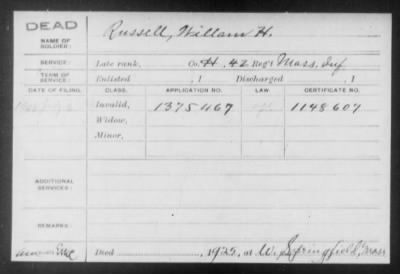 DEAD
NAME OF SOLDIER: Russell, William H.
SERVICE: Late rank, Co. H, 42 Reg't Mass. Inf
TERM OF SERVICE: Enlisted , 1 Discharged , 1
DATE OF FILING. CLASS. APPLICATION NO. LAW CERTIFICATE NO.
Invalid, 1375467 1148607
Widow,
Minor,
ADDITIONAL SERVICES:
REMARKS:
Died 1925, at W. Springfield, Mass